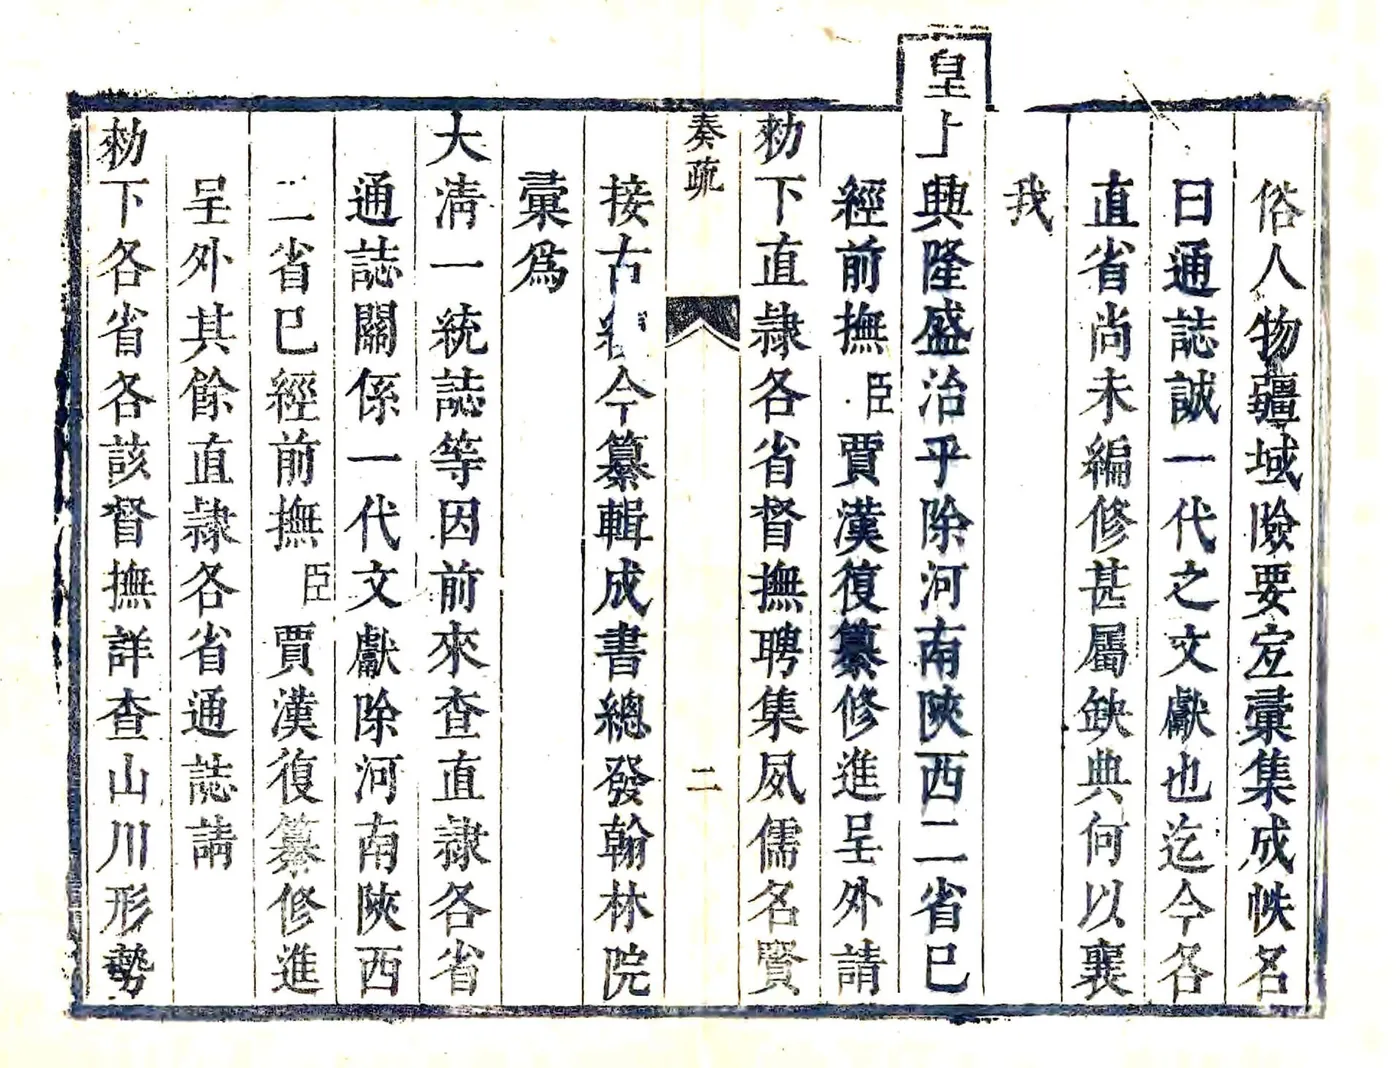 俗人物疆域險要宐彙集成帙名
曰通誌誠一代之文獻也迄今各
直省尚未編修甚屬缺典何以襄
我
皇上興隆盛治乎除河南陝西二省已
經前撫臣賈漢復纂修進呈外請
勅下直隷各省督撫聘集夙儒名賢
奏疏
二
接古今纂輯成書總發翰林院
彙爲
大淸一統誌等因前來查直隷各省
通誌關係一代文獻除河南陝西
二省已經前撫臣賈漢復纂修進
呈外其餘直隷各省通誌請
勅下各省各該督撫詳查山川形勢